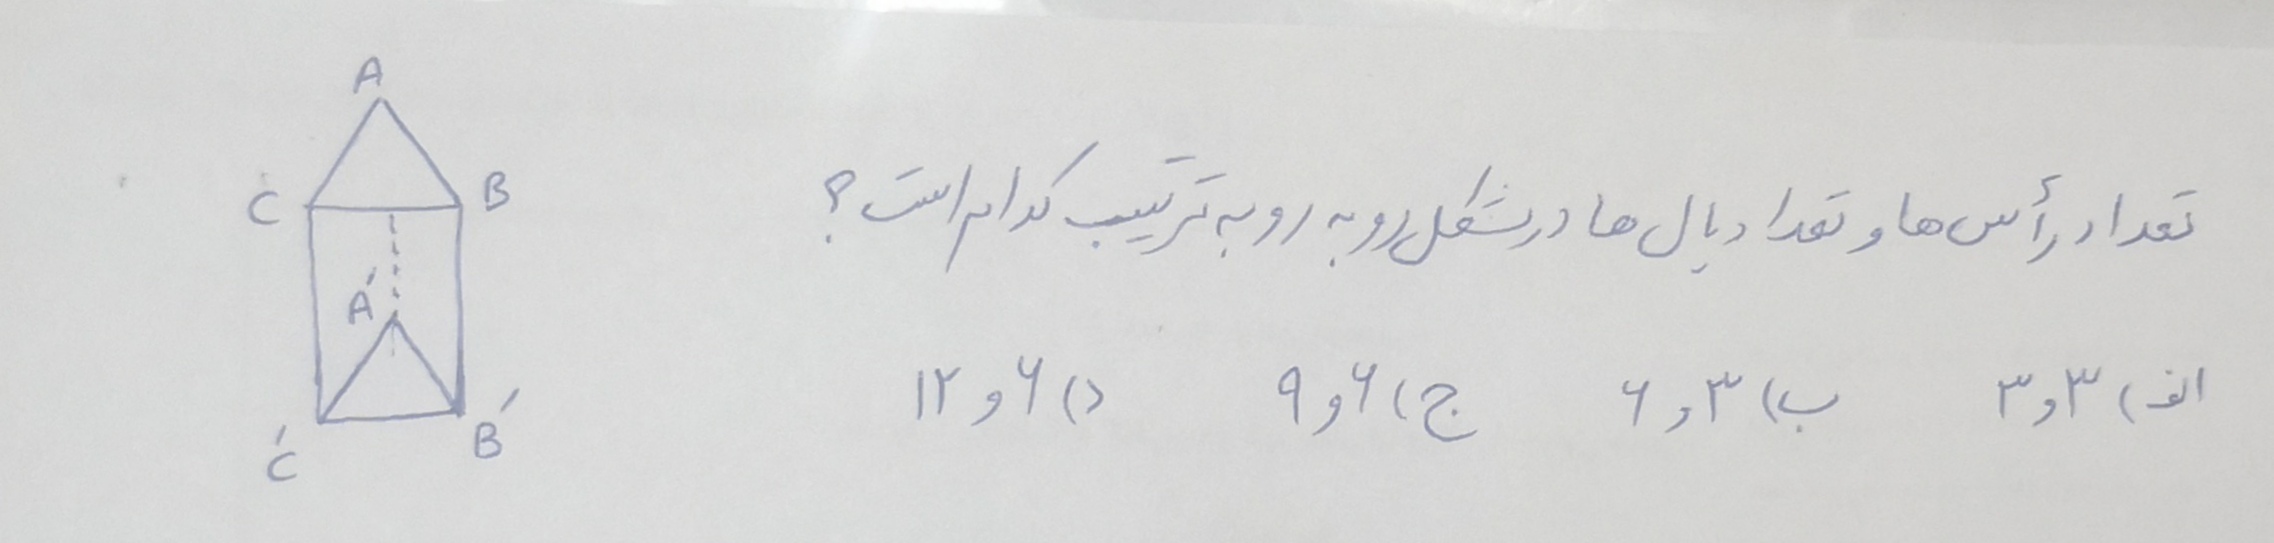 تعداد رأس ها و تعداد یال ها در شکل رو به رو به ترتیب کدام است؟
الف) ۳ و ۳ ب) ۳ و ۶ ج) ۶ و ۹ د) ۶ و ۱۲
A
C B
A'
C' B'